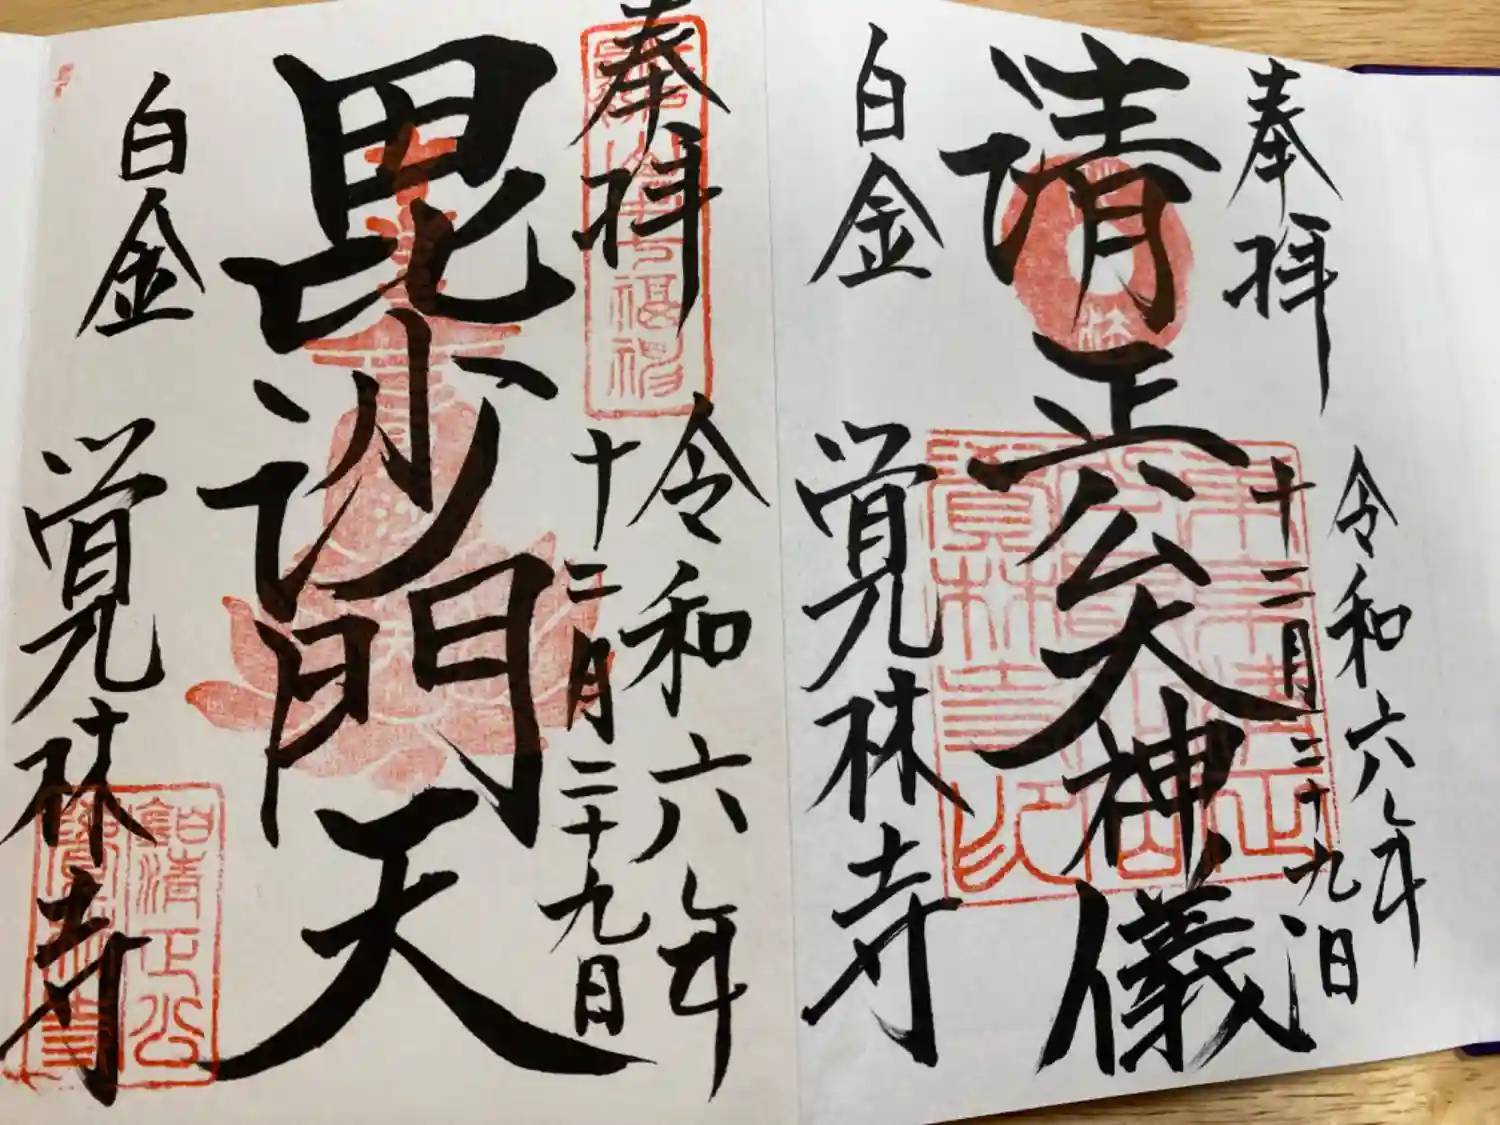 奉拝
令和六年
十二月二十九日
清正公大神儀
白金
覚林寺
覚林寺
奉拝
令和六年
十二月二十九日
毘沙門天
白金
覚林寺
清正公